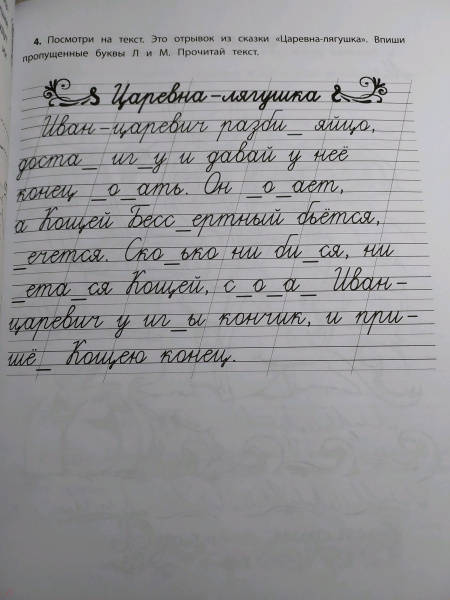 4. Посмотри на текст. Это отрывок из сказки «Царевна-лягушка». Впиши
пропущенные буквы Л и М. Прочитай текст.
Царевна-лягушка
Иван-царевич разби_ яйцо,
доста_ иг_у и давай у неё
конец _о_ать. Он _о_ает,
а Кощей Бесс_ертный бьётся,
_ечется. Ско_ько ни би_ся, ни
_ета_ся Кощей, с_о_а_ Иван-
царевич у иг_ы кончик, и при-
шё_ Кощею конец.